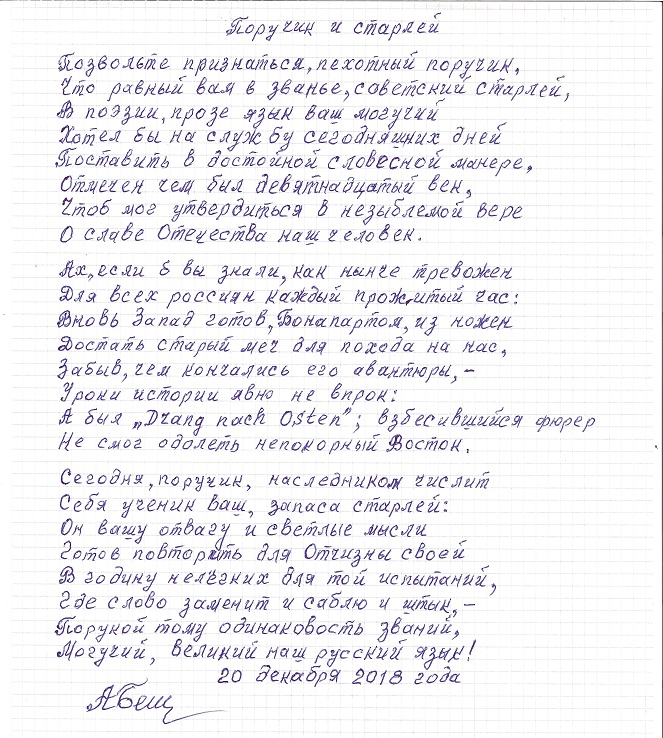 Поручик и старлей
Позвольте признаться, пехотный поручик,
Что равный вам в званье, советский старлей,
В поэзии, прозе язык ваш могучий
Хотел бы на службу сегодняшних дней
Поставить в достойной словесной манере,
Отмечен чем был девятнадцатый век,
Чтоб мог утвердиться в незыблемой вере
О славе Отечества наш человек.
Ах, если б вы знали, как нынче тревожен
Для всех россиян каждый прожитый час:
Вновь Запад готов, Бонапартом, из ножен
Достать старый меч для похода на нас,
Забыв, чем кончались его авантюры, –
Уроки истории явно не впрок:
А был „Drang nach Osten"; взбесившийся фюрер
Не смог одолеть непокорный Восток.
Сегодня, поручик, наследником числит
Себя ученик ваш, запаса старлей:
Он вашу отвагу и светлые мысли
Готов повторить для Отчизны своей
В годину нелёгких для той испытаний,
Где слово заменит и саблю и штык, –
Порукой тому одинаковость званий,
Могучий, великий наш русский язык!
20 декабря 2018 года